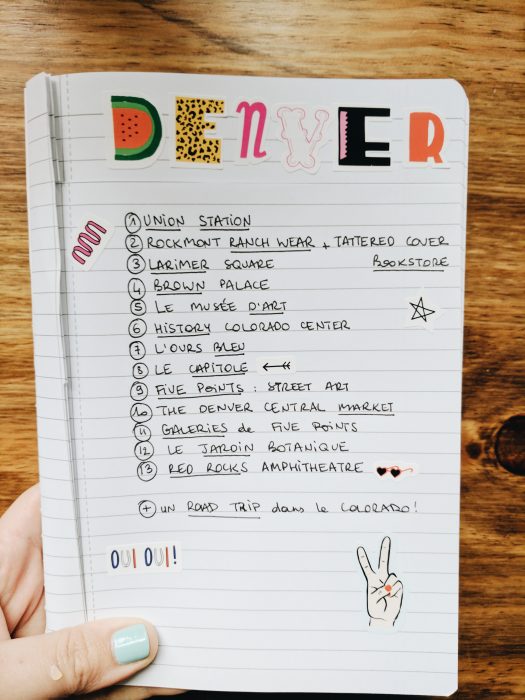 DENVER
1 UNION STATION
2 ROCKMONT RANCH WEAR + TATTERED COVER
BOOKSTORE
3 LARIMER SQUARE
4 BROWN PALACE
5 LE MUSÉE D'ART
6 HISTORY COLORADO CENTER
7 L'OURS BLEU
8 LE CAPITOLE
9 FIVE POINTS : STREET ART
10 THE DENVER CENTRAL MARKET
11 GALERIES de FIVE POINTS
12 LE JARDIN BOTANIQUE
13 RED ROCKS AMPHITHEATRE
+ UN ROAD TRIP dans le COLORADO!
OUI OUI!